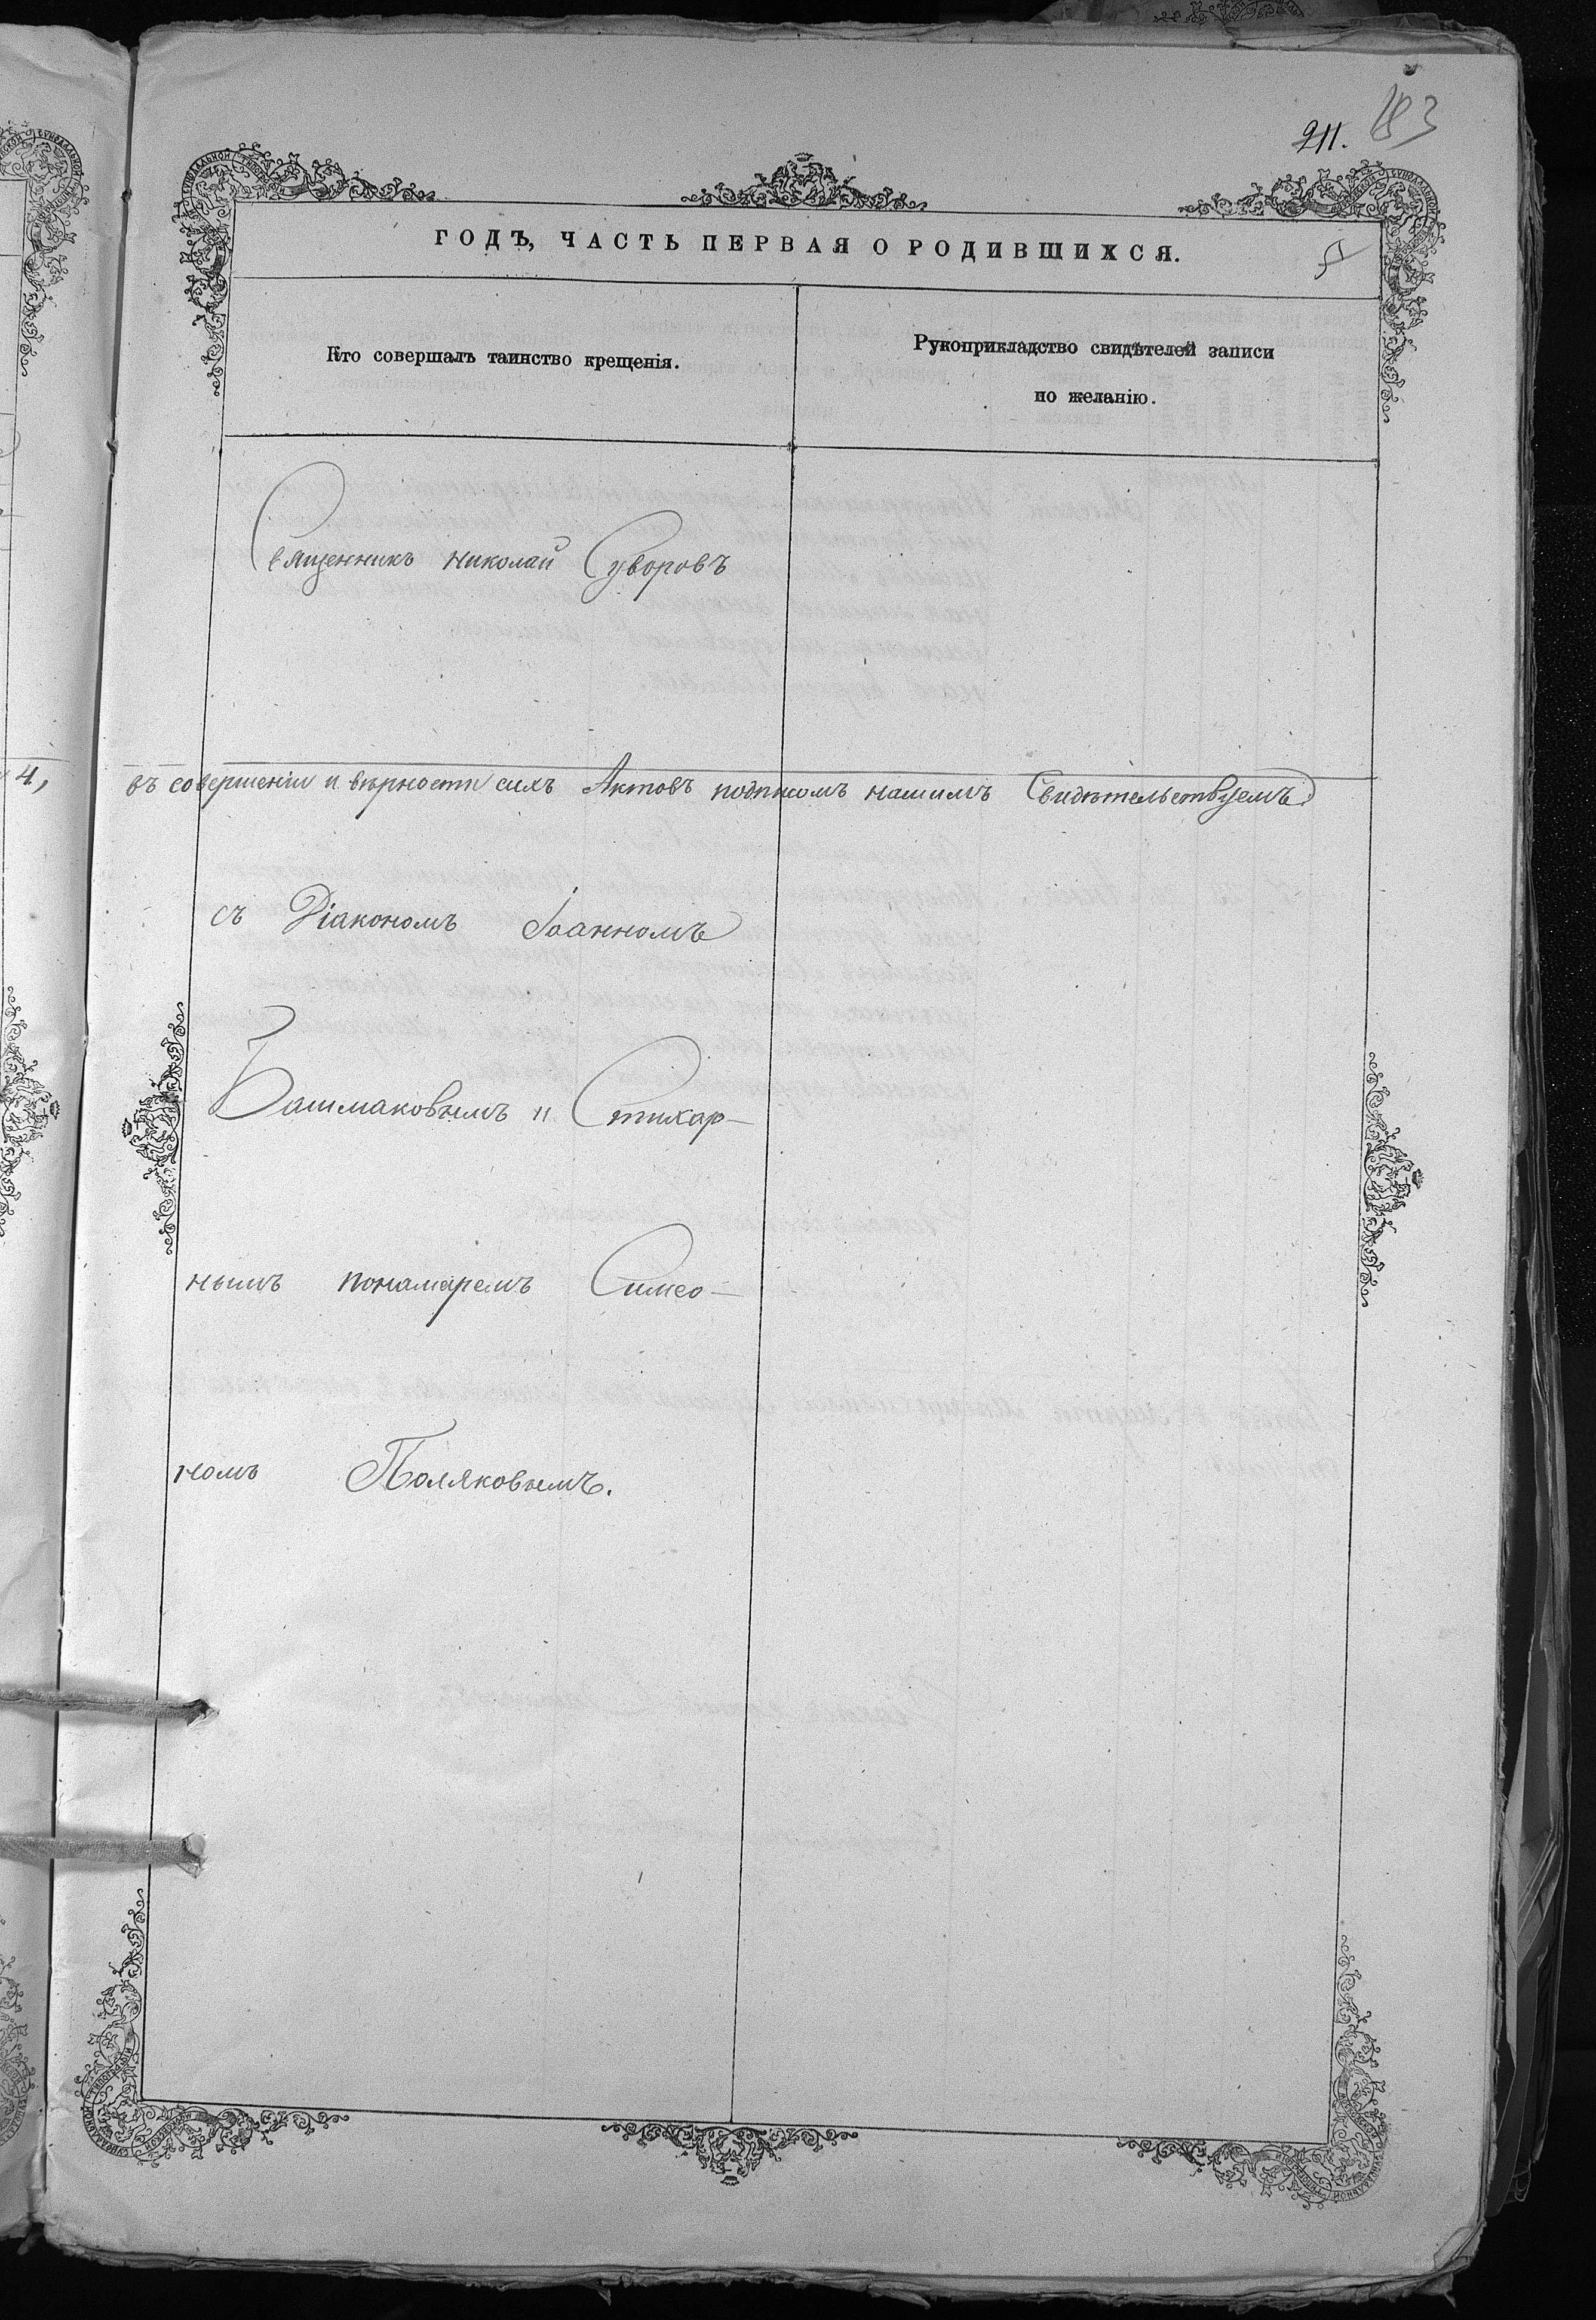 211. 183
ГОДЪ, ЧАСТЬ ПЕРВАЯ О РОДИВШИХСЯ.
Кто совершалъ таинство крещенія.
Рукоприкладство свидѣтелей записи
по желанію.
Священникъ Николай Суворовъ
4,
въ совершеніи и вѣрности сихъ Актовъ подписомъ нашимъ Свидѣтельствуемъ
съ Діакономъ Іоанномъ
Башмаковымъ и Стихар-
нымъ пономаремъ Симео-
номъ Поляковымъ.